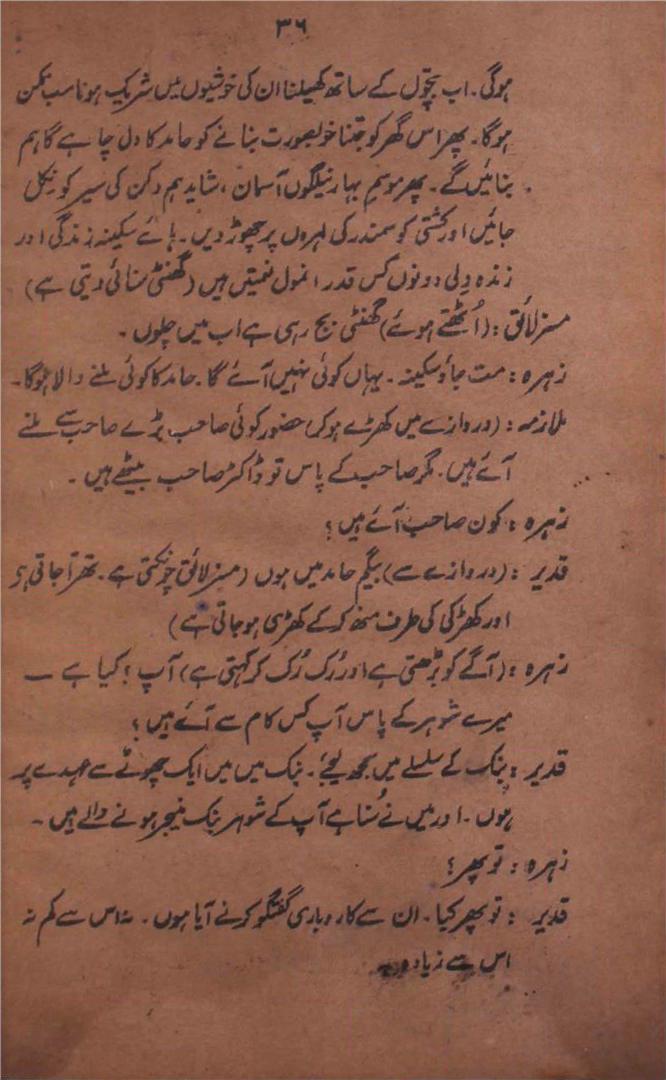 ۳۶
ہوگی۔ اب بچّوں کے ساتھ کھیلنا ان کی خوشیوں میں شریک ہونا سب ممکن
ہوگا۔ پھر اس گھر کو جتنا خوبصورت بنانے کو حامد کا دل چاہے گا ہم
بنائیں گے۔ پھر موسمِ بہار نیلگوں آسمان ، شاید ہم دکن کی سیر کو نکل
جائیں اور کشتی کو سمندر کی لہروں پر چھوڑ دیں۔ ہائے سکینہ زندگی اور
زندہ دِلی دونوں کس قدر انمول نعمتیں ہیں (گھنٹی سنائی دیتی ہے)
مسز لائق : (اُٹھتے ہوئے) گھنٹی بج رہی ہے اب میں چلوں۔
زہرہ : مت جاؤ سکینہ۔ یہاں کوئی نہیں آئے گا۔ حامد کا کوئی ملنے والا ہوگا۔
ملازمہ : (دروازے میں کھڑے ہوکر) حضور کوئی صاحب بڑے صاحب سے ملنے
آئے ہیں۔ مگر صاحب کے پاس تو ڈاکٹر صاحب بیٹھے ہیں۔
زہرہ : کون صاحب آئے ہیں؟
قدیر : (دروازے سے) بیگم حامد میں ہوں (مسز لائق چونکتی ہے۔ تھرّا جاتی ہے
اور کھڑکی کی طرف منھ کرکے کھڑی ہوجاتی ہے)
زہرہ : (آگے کو بڑھتی ہے اور رُک رُک کر کہتی ہے) آپ؟ کیا ہے —
میرے شوہر کے پاس آپ کس کام سے آئے ہیں؟
قدیر : بنک کے سلسلے میں سمجھ لیجئے۔ بنک میں میں ایک چھوٹے سے عہدے پر
ہوں۔ اور میں نے سُنا ہے آپ کے شوہر بنک منیجر ہونے والے ہیں۔
زہرہ : تو پھر؟
قدیر : تو پھر کیا۔ ان سے کاروباری گفتگو کرنے آیا ہوں۔ نہ اس سے کم نہ
اس سے زیادہ۔